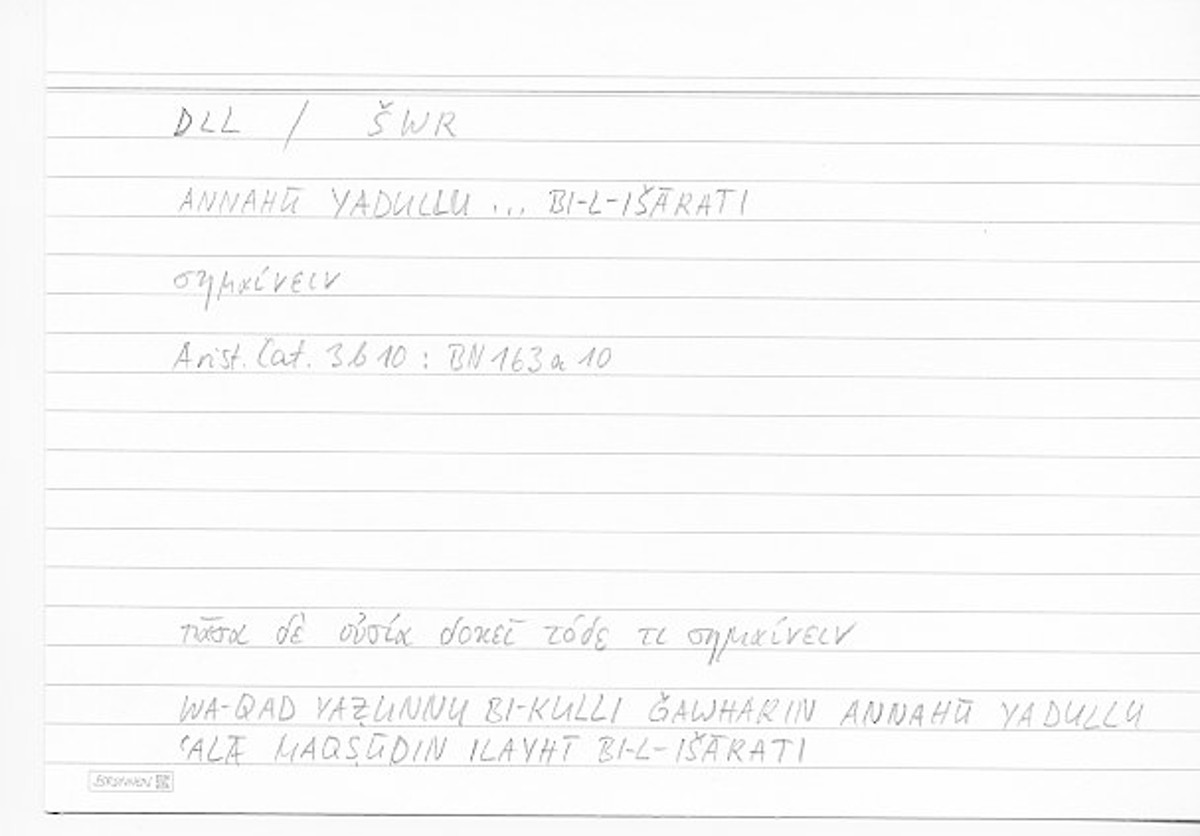 DLL / ŠWR
ANNAHŪ YADULLU ... BI-L-IŠĀRATI
σημαίνειν
Arist. Cat. 3b10 : BN 163a10
πᾶσα δὲ οὐσία δοκεῖ τόδε τι σημαίνειν
WA-QAD YAẒUNNU BI-KULLI ǦAWHARIN ANNAHŪ YADULLU
ʿALĀ MAQṢŪDIN ILAYHI BI-L-IŠĀRATI
BRUNNEN